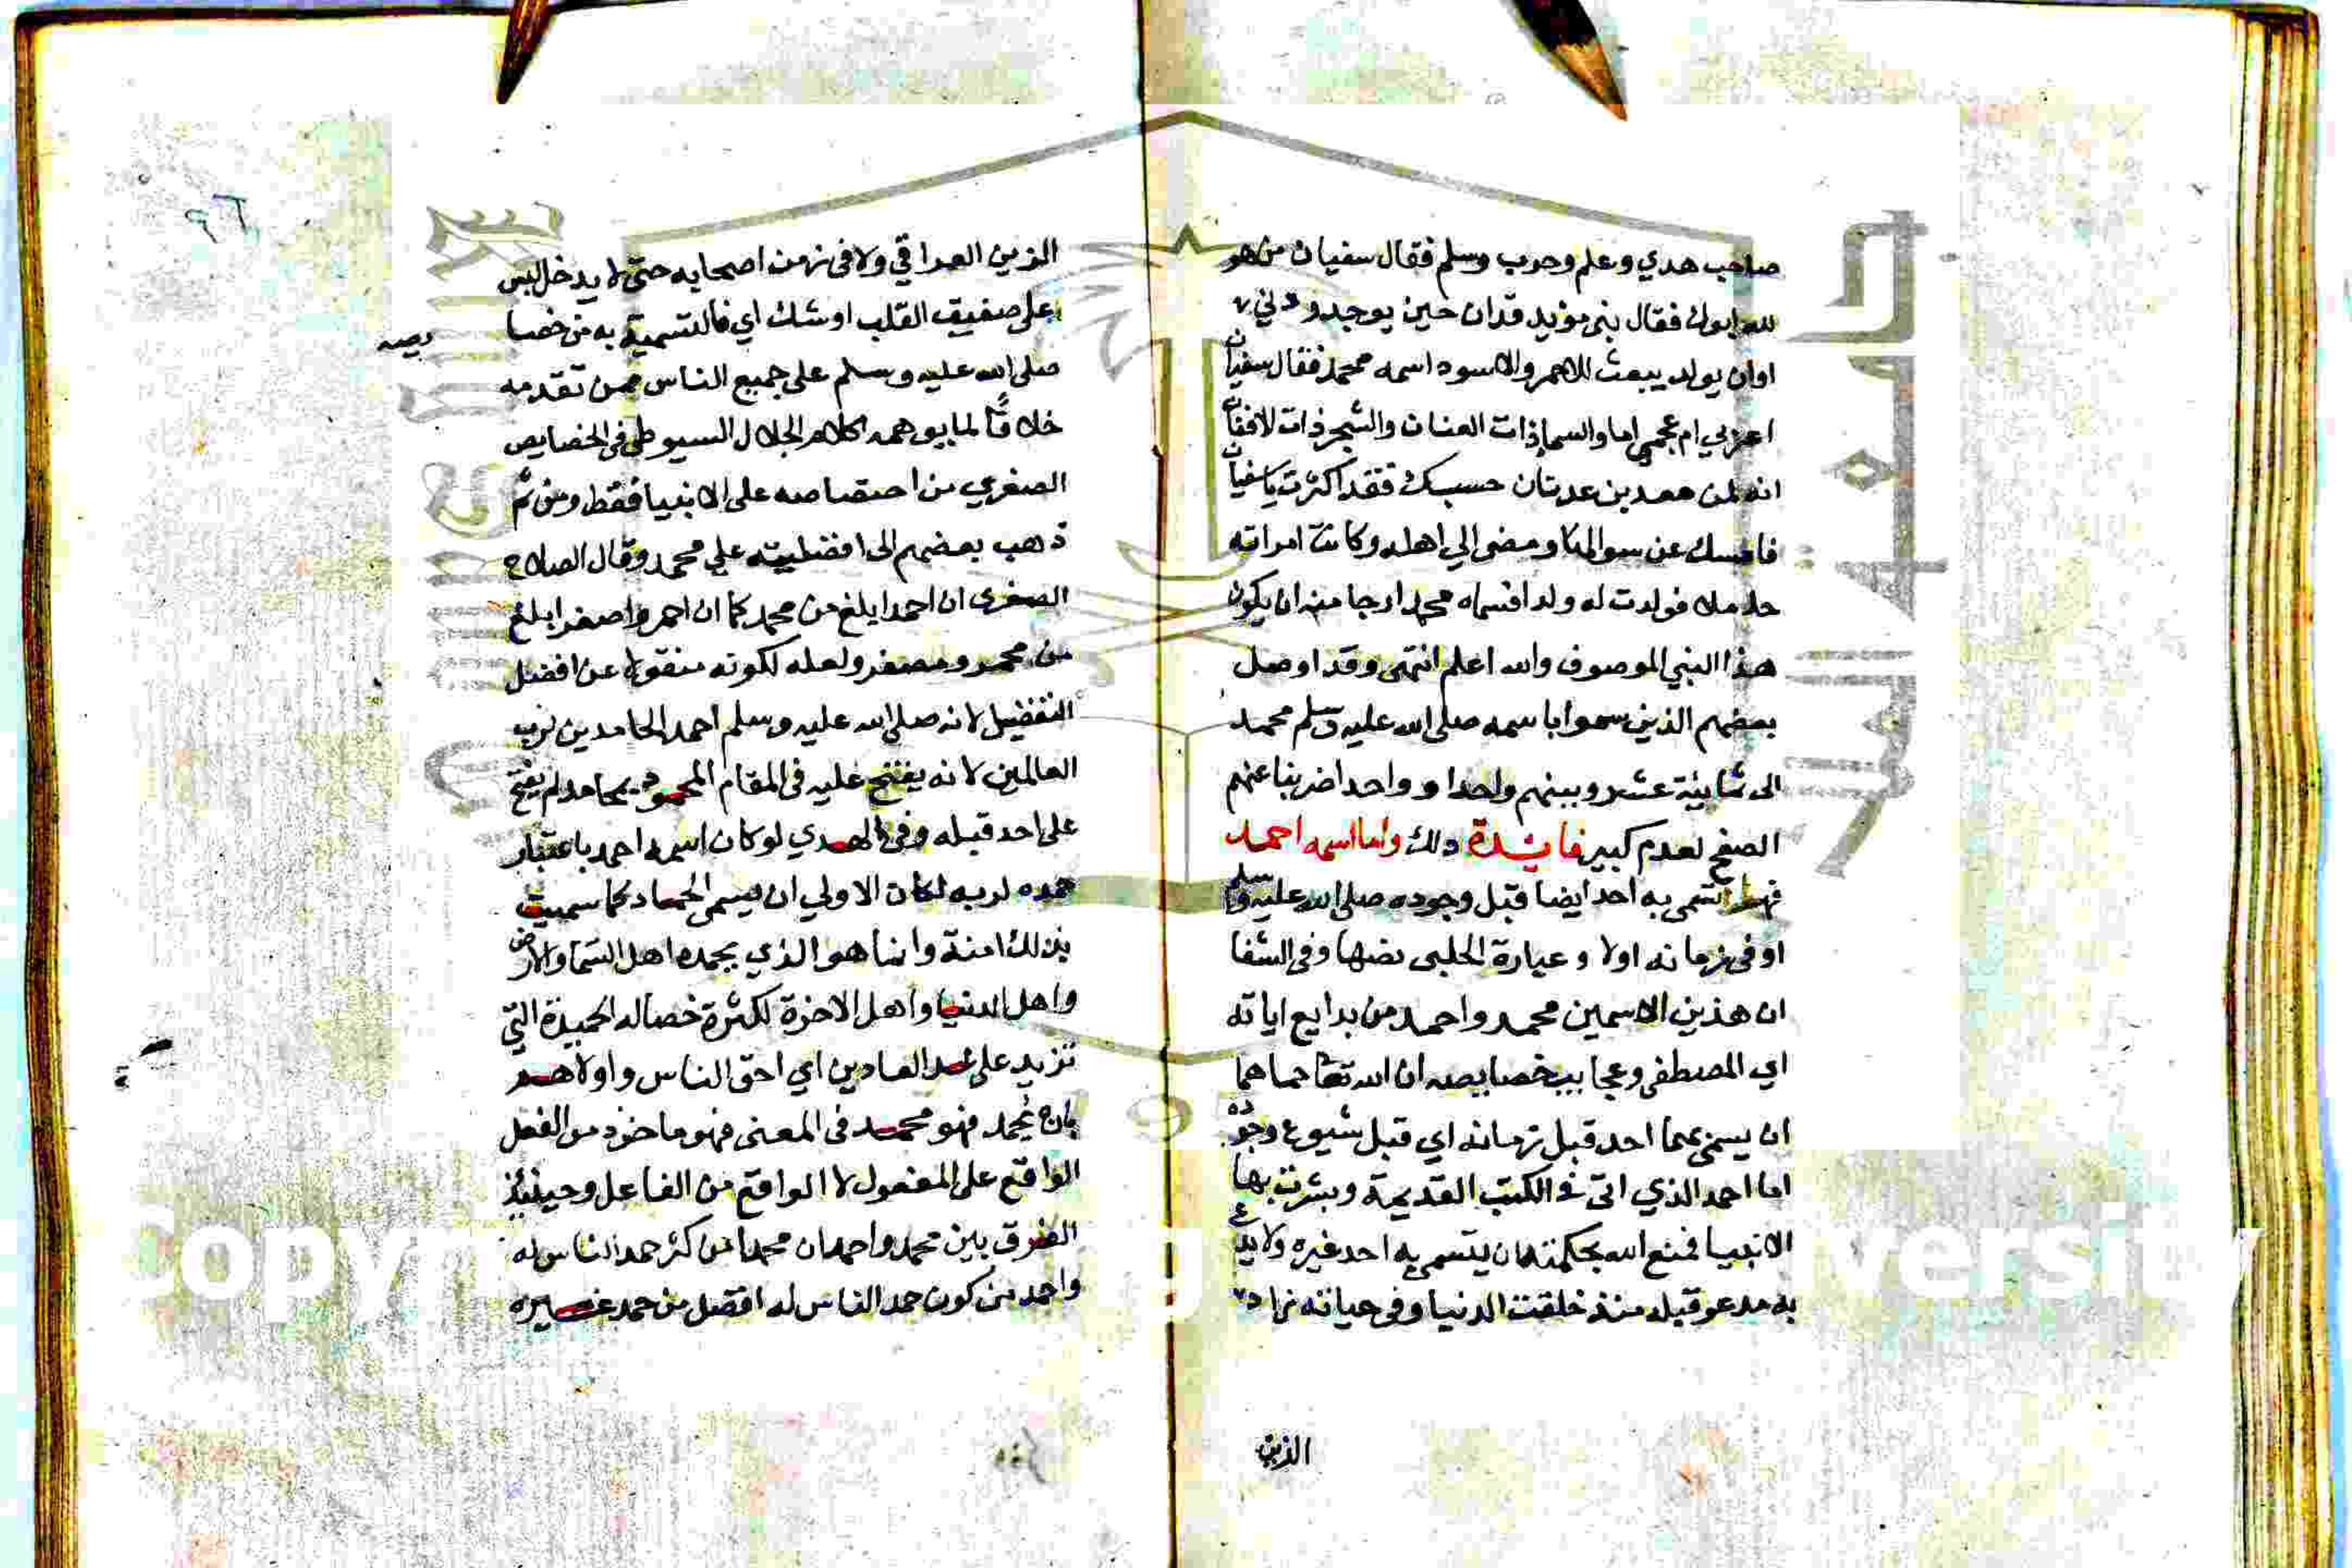 صاحب هدي وعلم وحرب وسلم فقال سفيان من هو
لله ابوك فقال بني مؤيد قد ان حين يوجد ودني
اوان يولد يبعث للاحمر والاسود اسمه محمد فقال سفيان
اعربي ام عجمي اما والسما ذات العنان والشجر ذات الافنان
انه لمن معد بن عدنان حسبك فقد اكثرت يا سفيان
فامسك عن سوالها ومضى الي اهله وكانت امراته
حاملا فولدت له ولدا فسماه محمدا رجا منه ان يكون
هذا النبي الموصوف والله اعلم انتهى وقد اوصل
بعضهم الذين سموا باسمه صلى الله عليه وسلم محمد
الى ثمانية عشر وبينهم واحدا و واحدا ضربنا عنهم
الصفح لعدم كبير فائدة ذلك واما اسمه احمد
فهو لم يتسمى به احد ايضا قبل وجوده صلى الله عليه وسلم
او في زمانه اولا و عبارة الحلبى نصها وفي الشفا
ان هذين الاسمين محمد واحمد من بدايع اياته
اي المصطفى وعجايب خصايصه ان الله تعا حماهما
ان يسمى بهما احد قبل زمانه اي قبل شيوع وجوده
اما احمد الذي اتى في الكتب القديمة وبشرت بها
الانبيا فمنع الله بحكمته ان يتسمى به احد غيره ولا يدع
به مدعو قبله منذ خلقت الدنيا وفى حياته زاد
الذين
٩٦
الزين العراقي ولا في زمن اصحابه حتى لا يدخل لبس
على ضعيف القلب او شك اي فالتسمية به من خصا
يصه
صلى الله عليه وسلم على جميع الناس ممن تقدمه
خلافًا لما يوهمه كلام الجلال السيوطى فى الخصايص
الصغري من اختصاصه على الانبيا فقط ومن ثم
ذهب بعضهم الى افضليته علي محمد وقال الصلاح
الصغرى ان احمد ابلغ من محمد كما ان احمر واصفر ابلغ
من محمر ومصفر ولعله لكونه منقولا عن افضل
التفضيل لانه صلى الله عليه وسلم احمد الحامدين لرب
العالمين لانه يفتح عليه فى المقام المحمود بمحامد لم يفتح
على احد قبله وفى الهدي لو كان اسمه احمد باعتبار
حمده لربه لكان الاولي ان يسمى الحماد كما سميت
بذلك امته وانما هو الذي يحمده اهل السما والارض
واهل الدنيا واهل الاخرة لكثرة خصاله الحميدة التي
تزيد على عد العادين اي احق الناس واولاهم
بان يُحمد فهو محمد فى المعنى فهو ماخوذ من الفعل
الواقع على المفعول لا الواقع من الفاعل وحينئذ
الفرق بين محمد واحمد ان محمدا من كثر حمد الناس له
واحمد من كون حمد الناس له افضل من حمد غيره